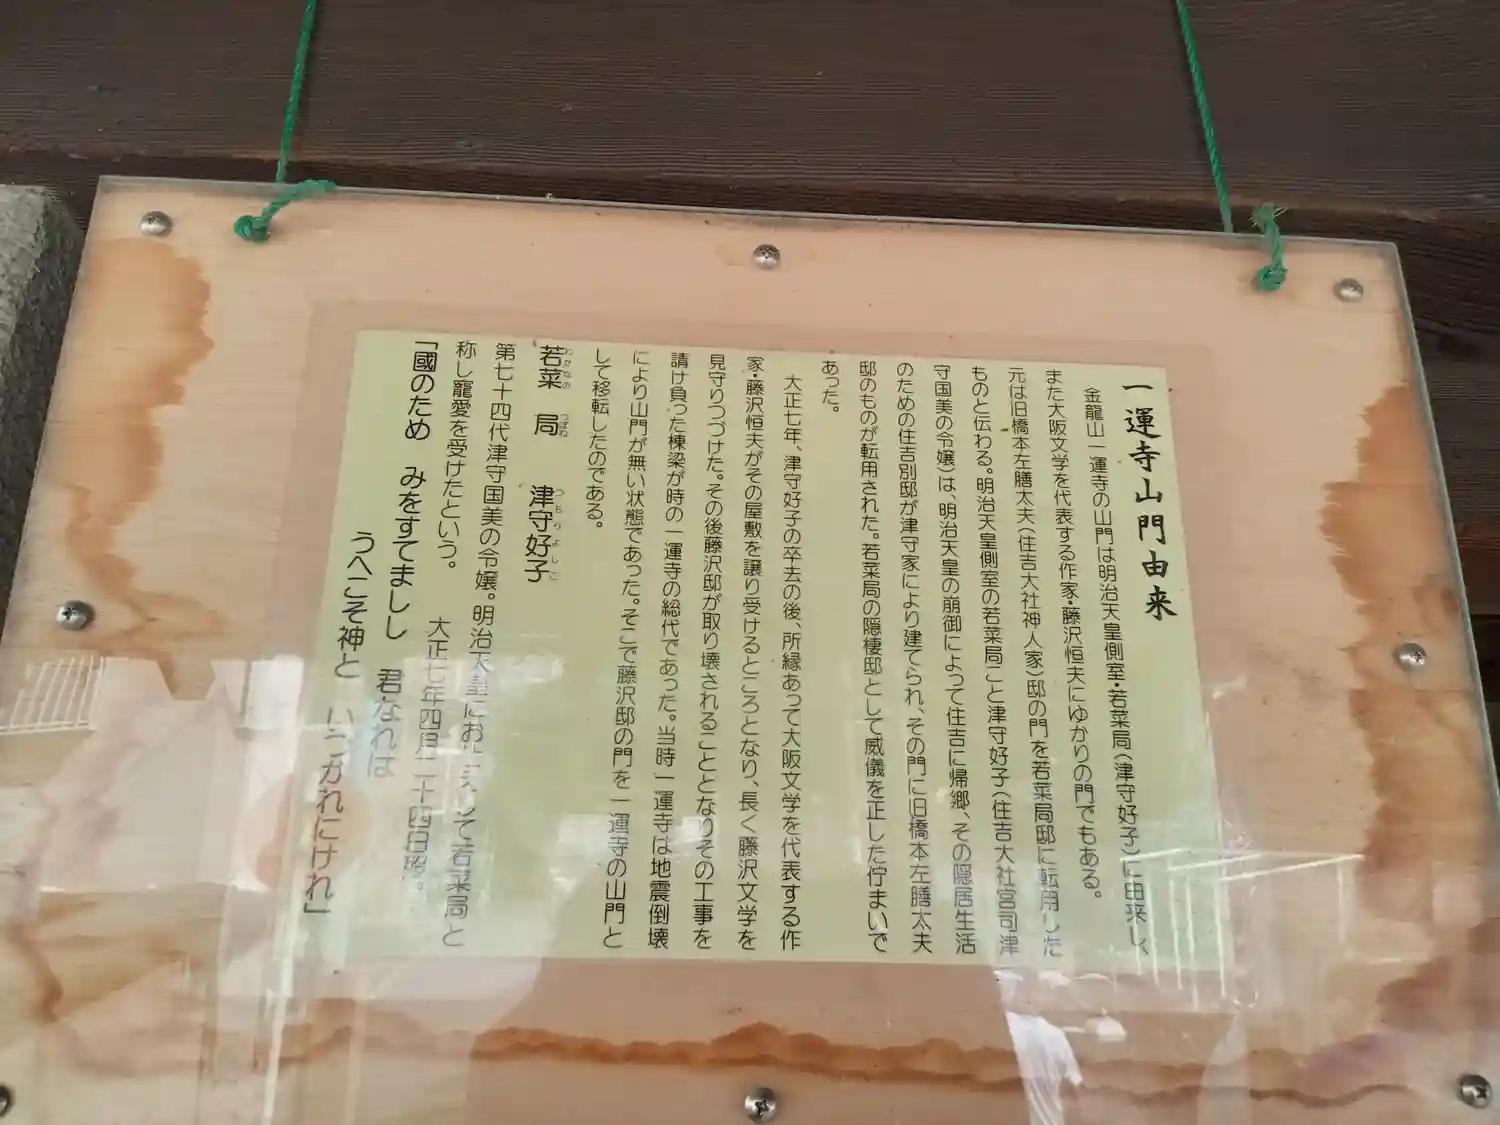 一運寺山門由来
金龍山一運寺の山門は明治天皇側室・若菜局(津守好子)に由来し、
また大阪文学を代表する作家・藤沢恒夫にゆかりの門でもある。
元は旧橋本左膳太夫(住吉大社神人家)邸の門を若菜局邸に転用した
ものと伝わる。明治天皇側室の若菜局こと津守好子(住吉大社宮司津
守国美の令嬢)は、明治天皇の崩御によって住吉に帰郷、その隠居生活
のための住吉別邸が津守家により建てられ、その門に旧橋本左膳太夫
邸のものが転用された。若菜局の隠棲邸として威儀を正した佇まいで
あった。
大正七年、津守好子の卒去の後、所縁あって大阪文学を代表する作
家・藤沢恒夫がその屋敷を譲り受けるところとなり、長く藤沢文学を
見守りつづけた。その後藤沢邸が取り壊されることとなりその工事を
請け負った棟梁が時の一運寺の総代であった。当時一運寺は地震倒壊
により山門が無い状態であった。そこで藤沢邸の門を一運寺の山門と
して移転したのである。
若菜 局 津守好子
わかなの つぼね つもりよしこ
第七十四代津守国美の令嬢。明治天皇にお して若菜局と
称し寵愛を受けたという。 大正七年四月二十四日 。
「國のため みをすてましし 君なれは
うへこそ神と いつかれにけれ」